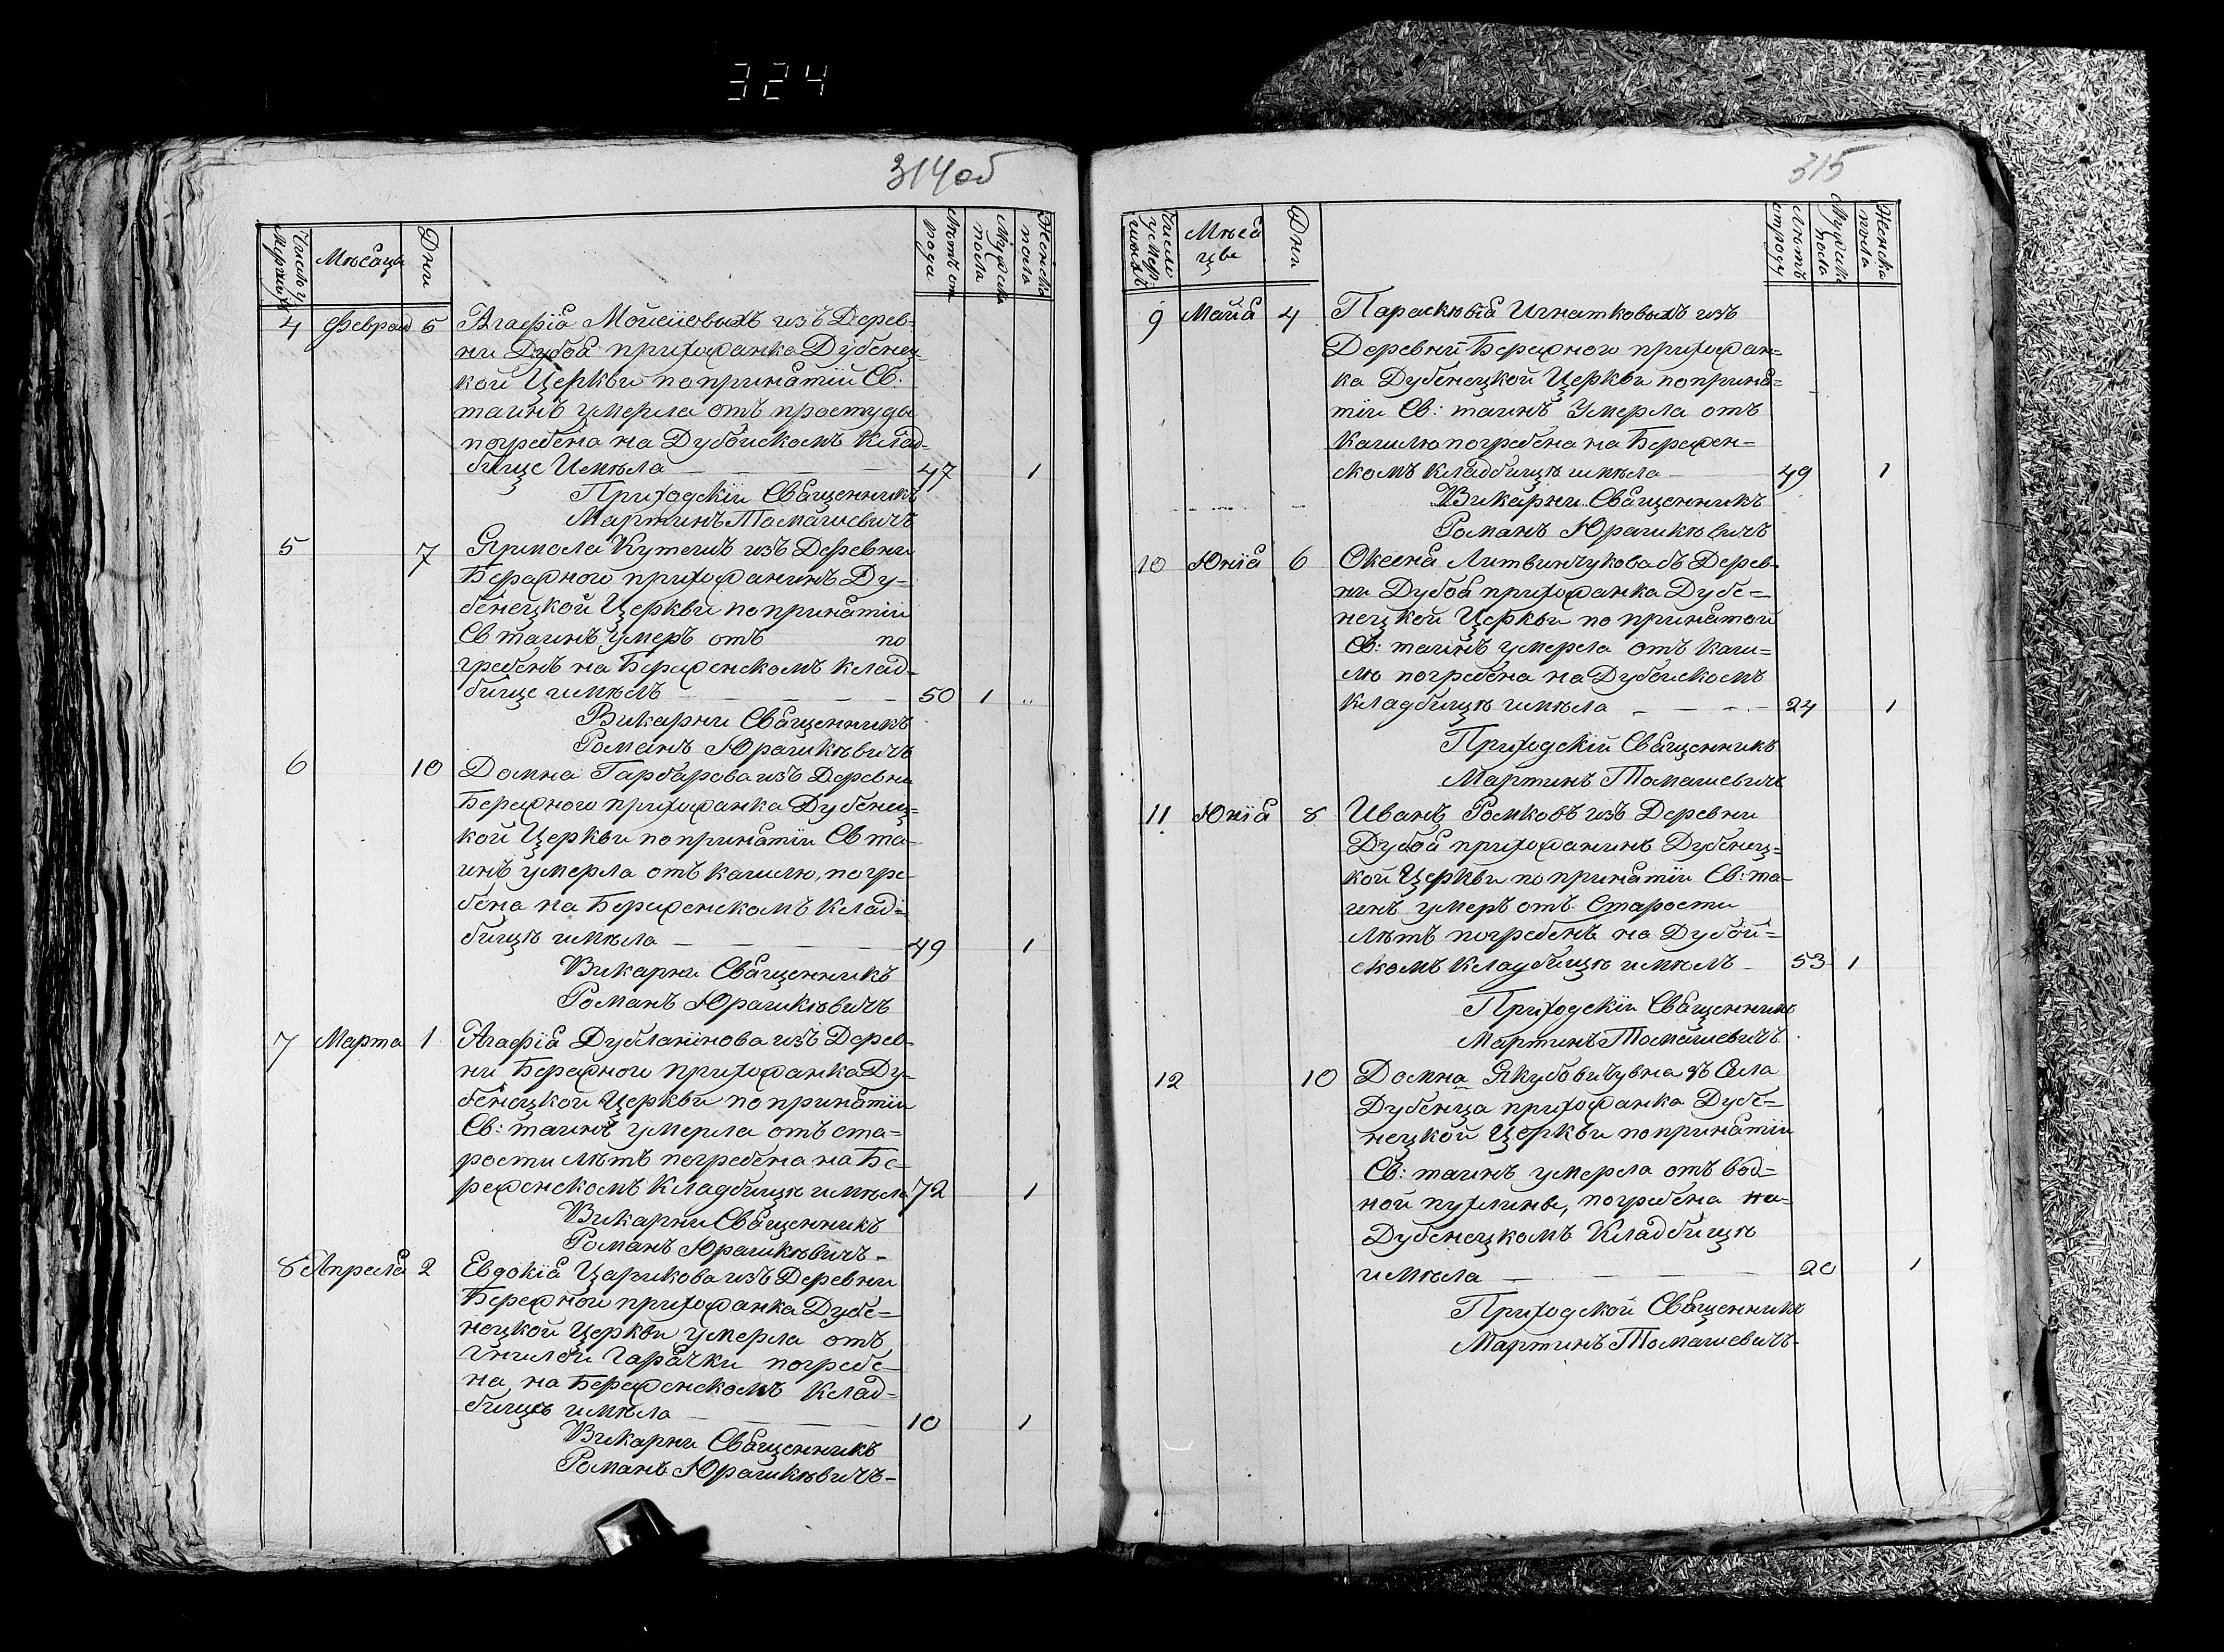 324
314об
Число у
мершихъ
Мѣсяца
Дни
Лѣтъ от
рода
Мужска
пола
Женска
пола
4 Феврал 6 Агафія Мойсіовыхъ изъ Дерев=
ни Дубоя прихожанка Дубенец=
кой Церкви попринятіи Св:
таинъ умерла отъ простуды
погребена на Дубойскомъ Клад=
бище Имѣла 47 1
Приходскіи Священникъ
Мартинъ Томашевичъ
5 7 Ярмола Кутешъ изъ Деревни
Бережного прихожанинъ Ду=
бенецкой Церкви попринятіи
Св таинъ умеръ отъ по
гребенъ на Береженскомъ Клад=
бище имѣлъ 50 1 "
Викарни Священникъ
Романъ Юрашкѣвичъ
6 10 Домна Гарбарова изъ Деревни
Бережного прихожанка Дубенец=
кой Церкви попринятіи Св та=
инъ умерла отъ кашлю, погре
бена на Береженскомъ Клад=
бищѣ имѣла 49 1
Викарни Священникъ
Романъ Юрашкѣвичъ
7 Марта 1 Агафія Дубланінова изъ Дерев=
ни Бережного прихожанка Ду=
бенецкой Церкви попринятіи
Св: таинъ умерла отъ ста=
рости лѣтъ погребена на Бе=
реженскомъ Кладбищѣ имѣла 72 1
Викарни Священникъ
Романъ Юрашкѣвичъ-
8 Апреля 2 Евдокія Царикова изъ Деревни
Бережной прихожанка Дубе=
нецкой Церкви умерла отъ
гнилой гарячки погребе=
на на Береженскомъ Клад=
бищѣ имѣла 10 1
Викарни Священникъ
Романъ Юрашкѣвичъ-
315
Число
умер
шихъ
Мѣся
цы
Дни
Лѣтъ
отроду
Мужска
пола
Женска
пола
9 Мая 4 Параскѣвія Игнатковыхъ изъ
Деревни Бережного прихожан=
ка Дубенецкой Церкви поприня=
тіи Св: таинъ Умерла отъ
Кашлю погребена на Бережен=
скомъ Кладбищѣ имѣла 49 1
Викарни Священникъ
Романъ Юрашкѣвичъ
10 Юнія 6 Оксеня Литвинчукова съ Дерев=
ни Дубоя прихожанка Дубе=
нецкой Церкви по принятой
Св: таинъ умерла отъ Каш=
лю погребена на Дубойскомъ
Кладбищѣ имѣла 24 1
Приходскій Священникъ
Мартинъ Томашевичъ
11 Юнія 8 Иванъ Ромковъ изъ Деревни
Дубоя прихожанинъ Дубенец=
кой Церкви попринятіи Св: та=
инъ умеръ отъ Старости
лѣтъ погребенъ на Дубой=
скомъ Кладбищѣ имѣлъ 53 1
Приходскіи Священникъ
Мартинъ Томашевичъ
12 10 Домна Якубовичувна зъ Села
Дубенца прихожанка Дубе=
нецкой Церкви попринятіи
Св: таинъ умерла отъ вод=
ной пухлины, погребена на=
Дубенецкомъ Кладбищѣ
имѣла 20 1
Приходской Священникъ
Мартинъ Томашевичъ-